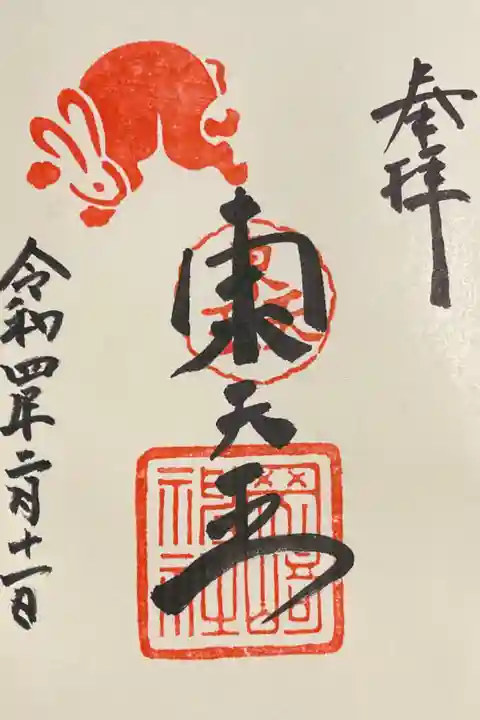 奉拝
東天王
岡崎神社
令和四年二月十一日